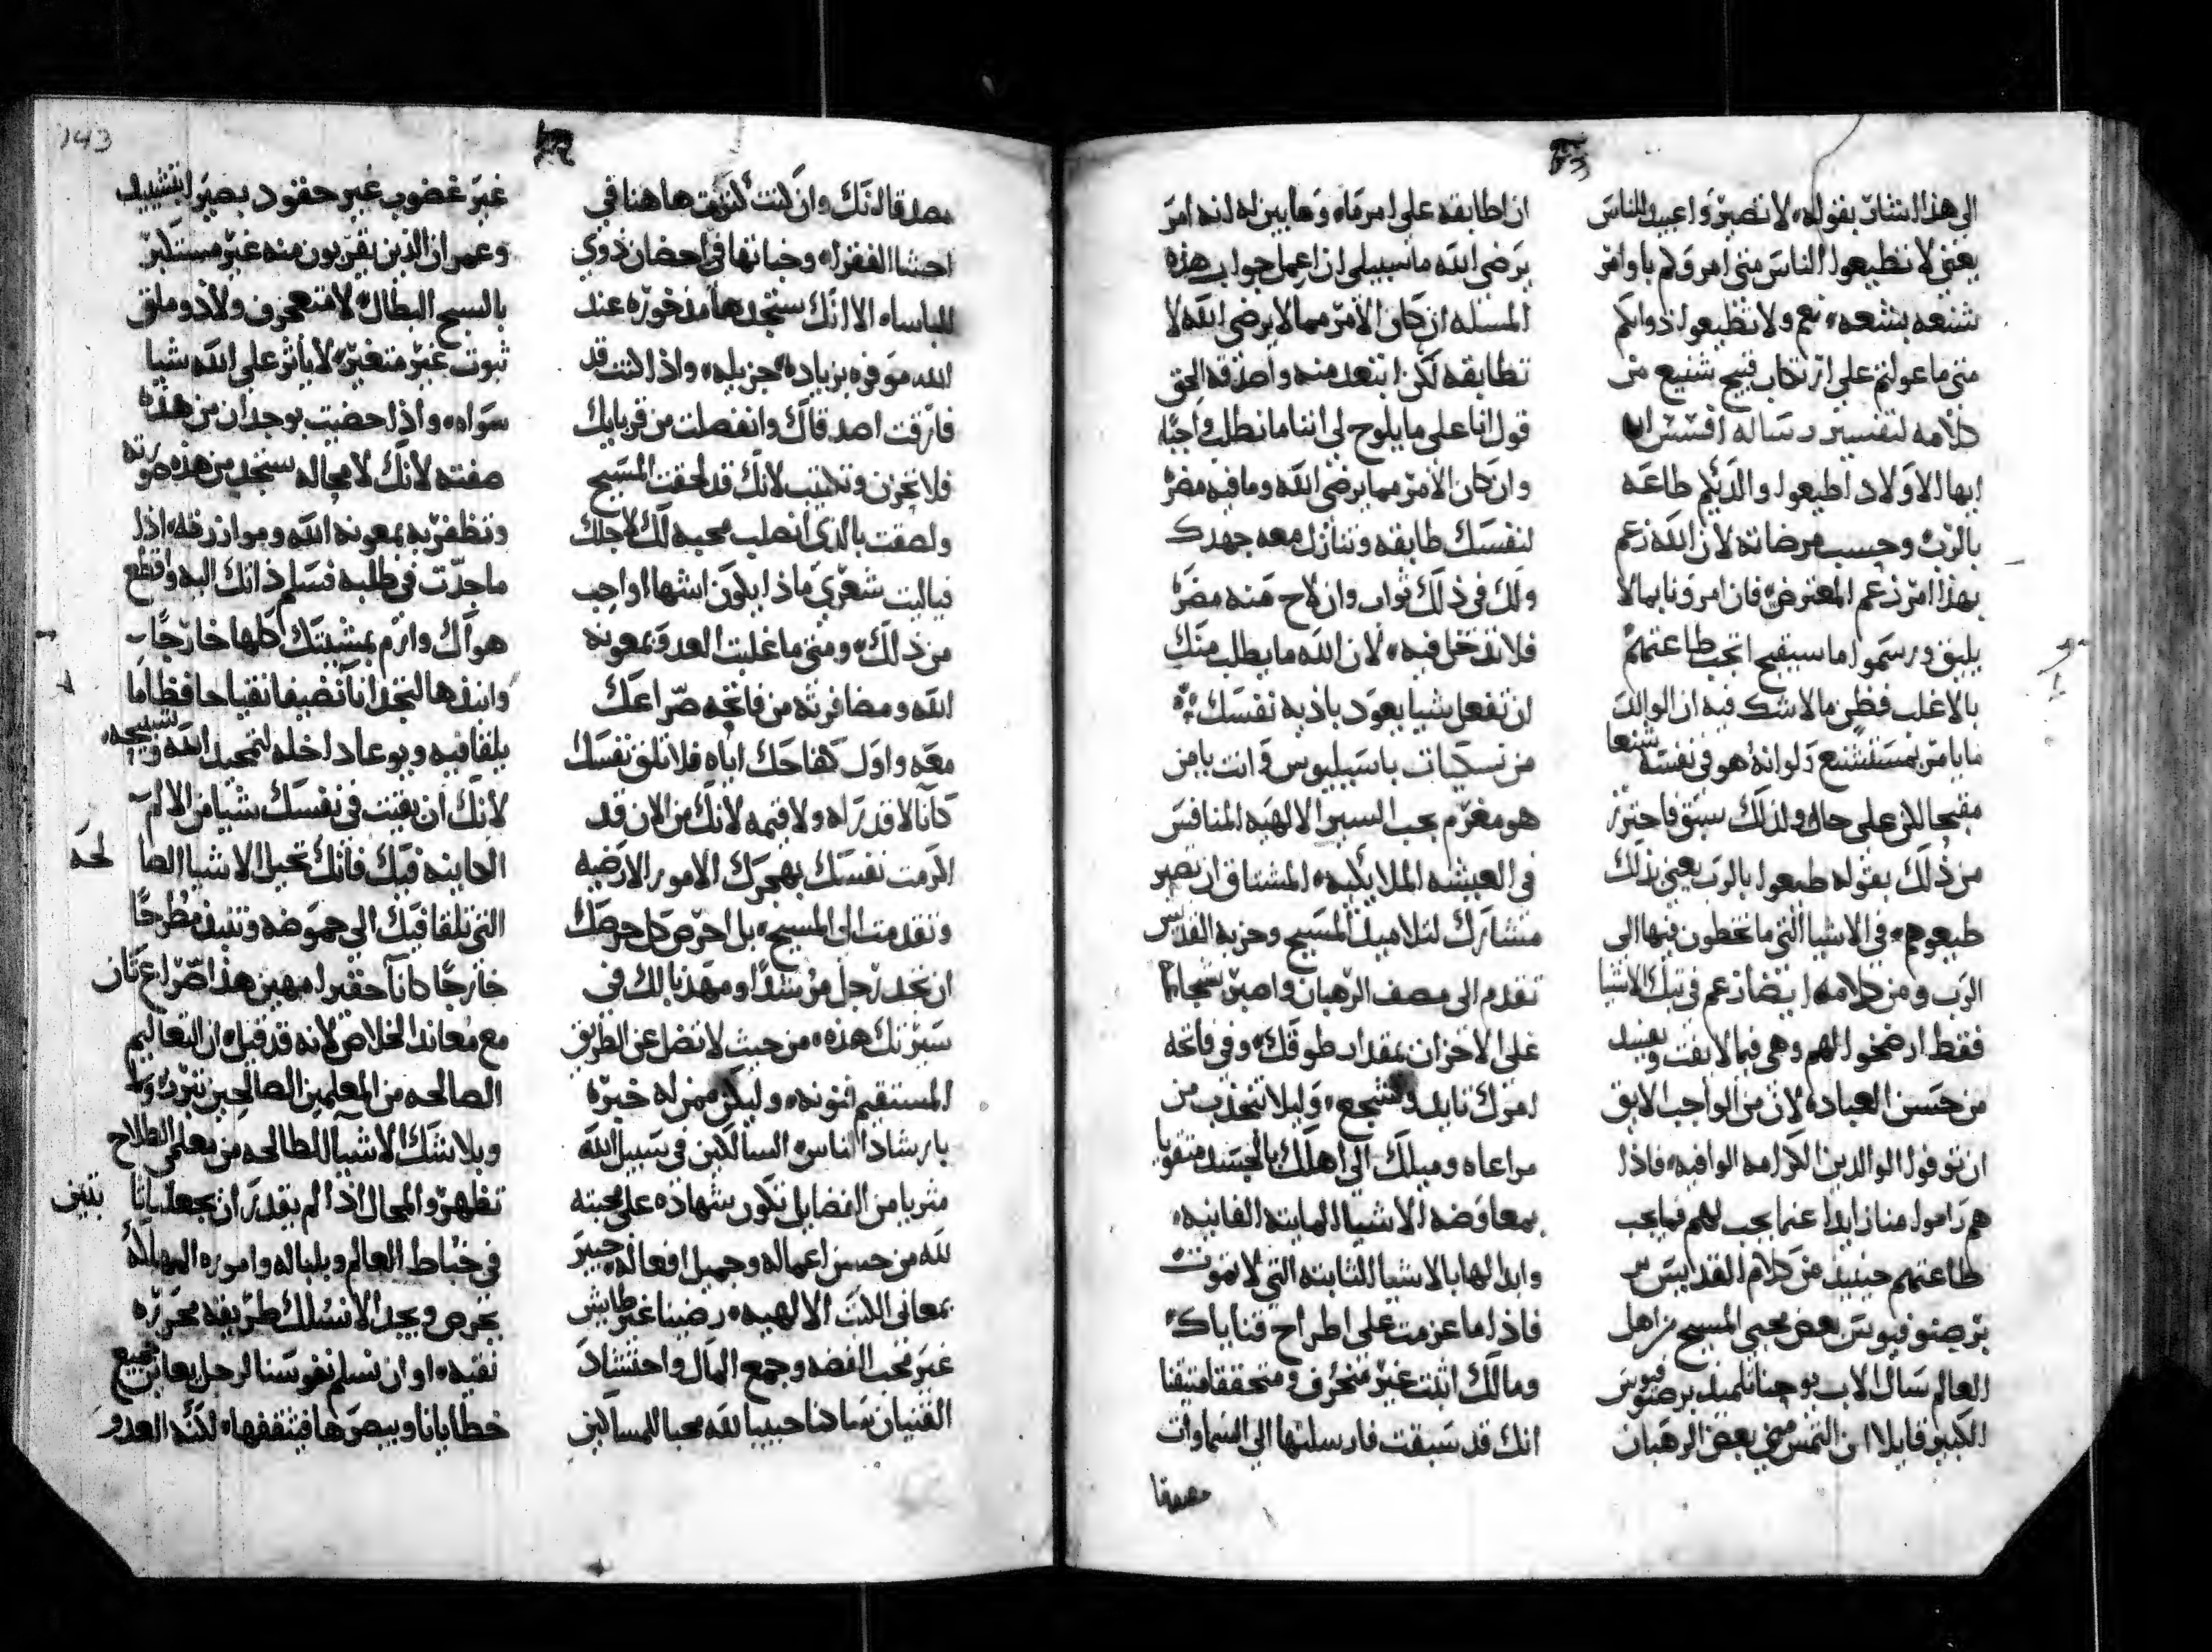 الى هذا اشار بقوله لا تصيروا عبيد الناس
يعني لا تطيعوا الناس متى امروكم باوامر
شنعه بشعه نعم ولا تطيعوا ذواتكم
متى ما عولتم على ارتكاب قبيح شنيع من
كلامه لتفسير رساله افسس
ايها الاولاد اطيعوا والديكم طاعه
بالرب وحسب مرضاته لان الله زعم
بهذا امر زعم المعترض فان امرونا بما لا
يليق ورسموا ما سيقبح اتجب طاعتهم
بالاغلب فظن ما لا شك فيه ان الوالد
ما يامر بمستشنع ولو انه هو في نفسه شنعا
مقبحا لكن على حال ولذلك سبق فاحترز
من ذلك بقوله طيعوا بالرب يعني بذلك
طيعوهم في الاشيا التي ما تخطون فيها الى
الرب ومن كلامه ايضا زعم في تلك الاشيا
فقط ارضخوا لهم وهي فيما لا يفت ويفسد
من حسن العباده لان من الواجب الايق
ان توفوا الوالدين الكرامه الوافيه فاذا
هم راموا منا زايدا عما يجب لهم فما يجب
طاعتهم حينيذ من كلام القديس
برصنوفيوس بعض محبي المسيح من اهل
العالم سال الاب يوحنا تلميذ برصنوفيوس
الكبير قايلا ان التمس مني بعض الرهبان
ان اطابقه على امر ما وما يبين له انه امر
يرضي الله ما سبيلي ان اعمل جواب هذه
المسله ان كان الامر مما لا يرضي الله لا
تطابقه لكن ابتعد منه واصدقه الحق
قول انا على ما يلوح لي اننا ما نطلب واجبا
وان كان الامر مما يرضي الله وما فيه مضره
لنفسك طابقه وتنازل معه جهدك
ولك في ذلك ثواب وان لاح منه مضره
فلا تدخل فيه لان الله ما يطلب منك
ان تفعل شيا يعود باذيه نفسك
من نسكيات باسيليوس وانت يا من
هو مغرم بحب السير الالهيه المنافس
في العيشه الملايكيه المشتاق ان تصير
متشارك لتلاميذ المسيح وحزبه القديس
تقدم الى مصف الرهبان واصبر شجاعا
على الاحزان بمقدار طوقك وفي فاتحه
امرك تايد وتشجع وليلا تنجذب من
مراعاه وميلك الى اهلك بالجسد متقويا
بمعاوضه الاشيا المايته الفانيه
وابدالها بالاشيا الثابته التي لا تموت
فاذا ما عزمت على اطراح قناياك
ومالك اثبت غير منحرف ومتحققا متيقنا
انك قد سبقت فارسلتها الى السماوات
مصدقا
مصدقا لانك وان كنت كنزت ها هنا في
احشا الفقرا وخباتها في احضان ذوي
الباساء الا انك ستجدها مذخوره عند
الله موفره بزياده جزيله واذا كنت قد
فارقت اصدقاك وانفصلت من قربايك
فلا تحزن وتكتيب لانك قد لحقت المسيح
ولصقت بالذي انصلب محبه لك لاجلك
فياليت شعري ماذا يكون اشها او احب
من ذلك ومتى ما غلبت العدو بمعونه
الله ومضافرته من فاتحه صراعك
معه واول كفاحك اياه فلا تلق نفسك
كانا لا قدر له ولا قيمه لانك من الان قد
اكرمت نفسك بهجرك الامور الارضيه
وتقدمت الى المسيح بل احرص كل حرصك
ان تجد رجل مرشدا ومهديا لك في
سيرتك هذه من حيث لا تضل عن الطريق
المستقيم فنونه وليكن ممن له خبره
بارشاد الناس السالكين في سبيل الله
مثريا من الفضايل تكون شهاده على محبته
لله من حسن اعماله وجميل افعاله خبير
بمعاني الكتب الالهيه رصينا غير طايش
غير محب الفضه وجمع المال واحتشاد
القنيان ساكنا حبيبا لله محبا للمساكين
غير غضوب غير حقود بصيرا بتشييد
وعمران الذين يقربون منه غير مستكبر
بالسبح البطال لا متعجرف ولا ذو ملق
ثبوت غير متغير لا ياثر على الله شيا
سواه واذا حضيت بوجدان من هذه
صفته لانك لا محاله ستجد من هذه صورته
وتظفر به بمعونه الله وموازرته اذا
ما جديت في طلبه فسلم ذاتك اليه واقطع
هواك وارم بمشيتك كلها خارجا
وانبذها لتجد انا نضيفا نقيا حافظا ما
يلقا فيه ويوعا داخله لتمجيد الله وتسبيحه
لانك ان بقيت في نفسك شيا من الالم
الكاينه فيك فانك تحيل الاشيا الصالحه
التي تلقا فيك الى حموضه وتنبذ مطرحا
خارجا كانا حقيرا مهين هذا صراع ثان
مع معاند الخلاص لانه قد قيل ان التعاليم
الصالحه من المعلمين الصالحين تبرز
وبلا شك الاشيا الطالحه من معلمي الطلاح
تظهر والمحال اذا لم يقدر ان يجعلنا ثابتين
في خباط العالم وبلباله واموره المهلكه
يحرص ويجد الا نسلك طريقه محرره
نقيه او ان نسلم نفوسنا لرجل يعاين جميع
خطايانا ويبصرها فيثقفها لكنه العدو
143